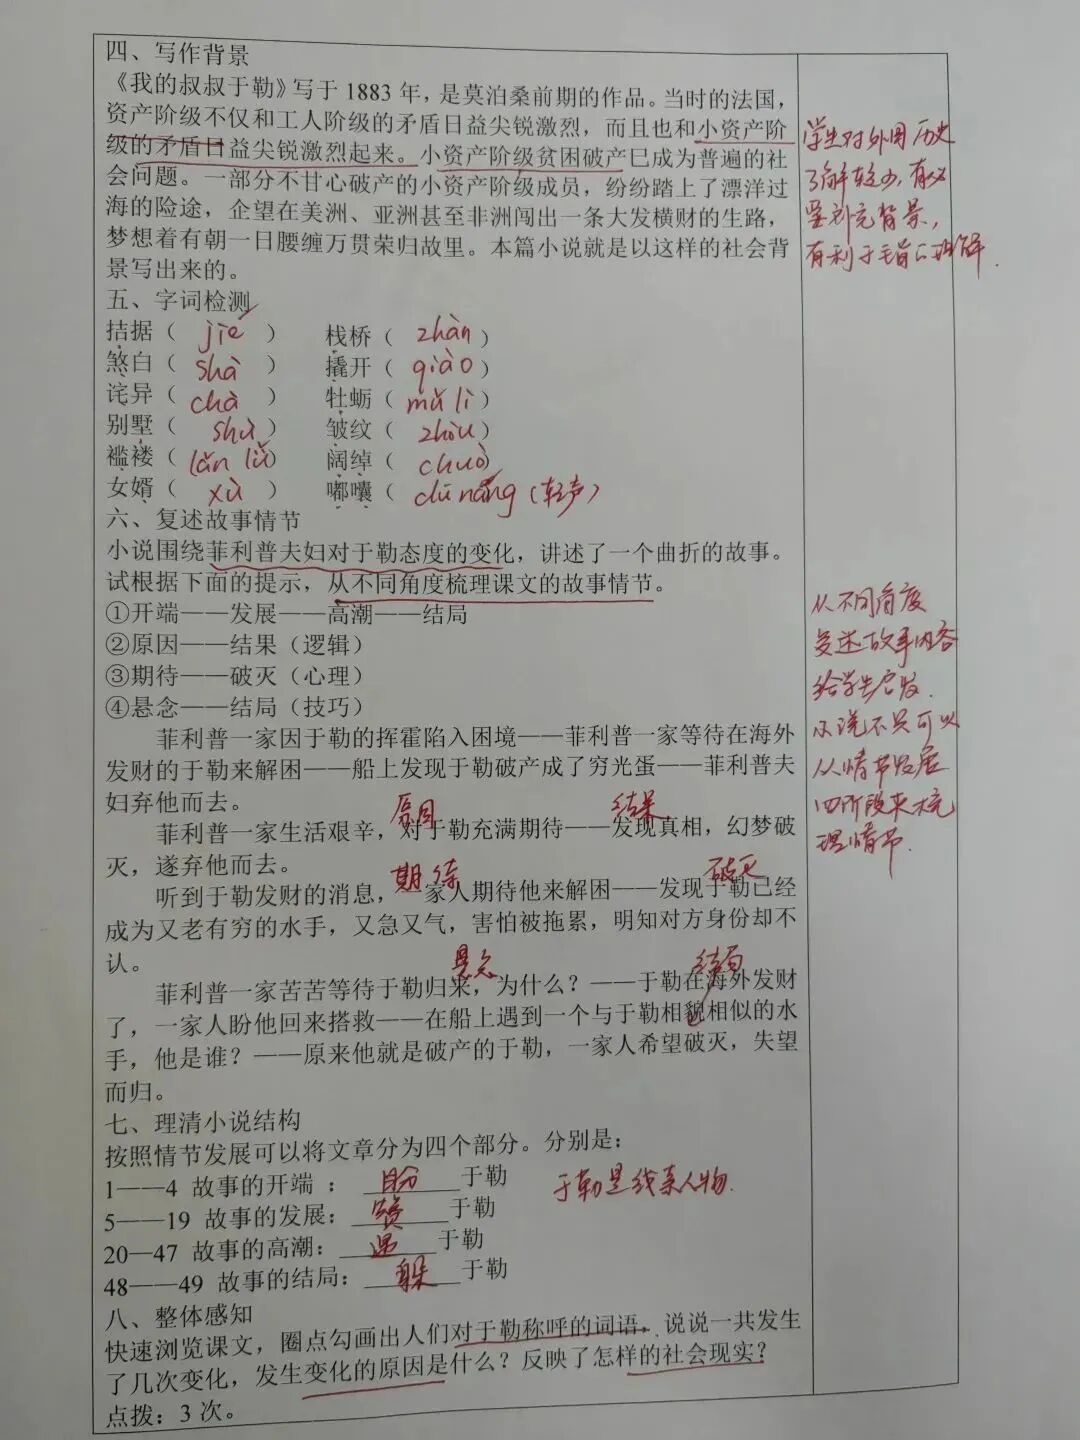 四、写作背景
《我的叔叔于勒》写于 1883 年，是莫泊桑前期的作品。当时的法国，
资产阶级不仅和工人阶级的矛盾日益尖锐激烈，而且也和小资产阶
级的矛盾日益尖锐激烈起来。小资产阶级贫困破产已成为普遍的社
会问题。一部分不甘心破产的小资产阶级成员，纷纷踏上了漂洋过
海的险途，企望在美洲、亚洲甚至非洲闯出一条大发横财的生路，
梦想着有朝一日腰缠万贯荣归故里。本篇小说就是以这样的社会背
景写出来的。
学生对外国历史
了解较少，有必
要补充背景，
有利于主旨的理解.
五、字词检测
拮据（ jié ） 栈桥（ zhàn ）
煞白（ shà ） 撬开（ qiào ）
诧异（ chà ） 牡蛎（ mǔ lì ）
别墅（ shù ） 皱纹（ zhòu ）
褴褛（ lán lǚ ） 阔绰（ chuò ）
女婿（ xù ） 嘟囔（ dū nang（轻声）
六、复述故事情节
小说围绕菲利普夫妇对于勒态度的变化，讲述了一个曲折的故事。
试根据下面的提示，从不同角度梳理课文的故事情节。
①开端——发展——高潮——结局
②原因——结果（逻辑）
③期待——破灭（心理）
④悬念——结局（技巧）
菲利普一家因于勒的挥霍陷入困境——菲利普一家等待在海外
发财的于勒来解困——船上发现于勒破产成了穷光蛋——菲利普夫
妇弃他而去。
原因 结果
菲利普一家生活艰辛，对于勒充满期待——发现真相，幻梦破
灭，遂弃他而去。
期待 破灭
听到于勒发财的消息，一家人期待他来解困——发现于勒已经
成为又老有穷的水手，又急又气，害怕被拖累，明知对方身份却不
认。
悬念 结局
菲利普一家苦苦等待于勒归来，为什么？——于勒在海外发财
了，一家人盼他回来搭救——在船上遇到一个与于勒相貌相似的水
手，他是谁？——原来他就是破产的于勒，一家人希望破灭，失望
而归。
从不同角度
复述故事内容
给学生启发.
小说不只可以
从情节发展
四阶段来梳
理情节.
七、理清小说结构
按照情节发展可以将文章分为四个部分。分别是：
1——4 故事的开端 ： 盼 于勒 于勒是线索人物.
5——19 故事的发展： 赞 于勒
20—47 故事的高潮： 遇 于勒
48——49 故事的结局： 躲 于勒
八、整体感知
快速浏览课文，圈点勾画出人们对于勒称呼的词语，说说一共发生
了几次变化，发生变化的原因是什么？反映了怎样的社会现实？
点拨：3 次。